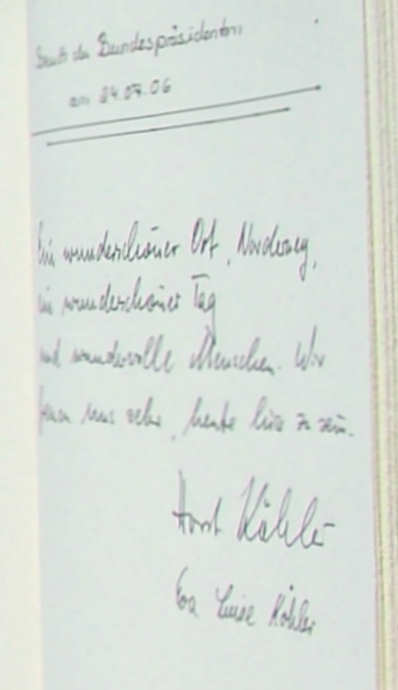 Besuch des Bundespräsidenten
am 24.07.06
Ein wunderschöner Ort, Norderney,
ein wunderschöner Tag
und wundervolle Menschen. Wir
freuen uns sehr, heute hier zu sein.
Horst Köhler
Eva Luise Köhler